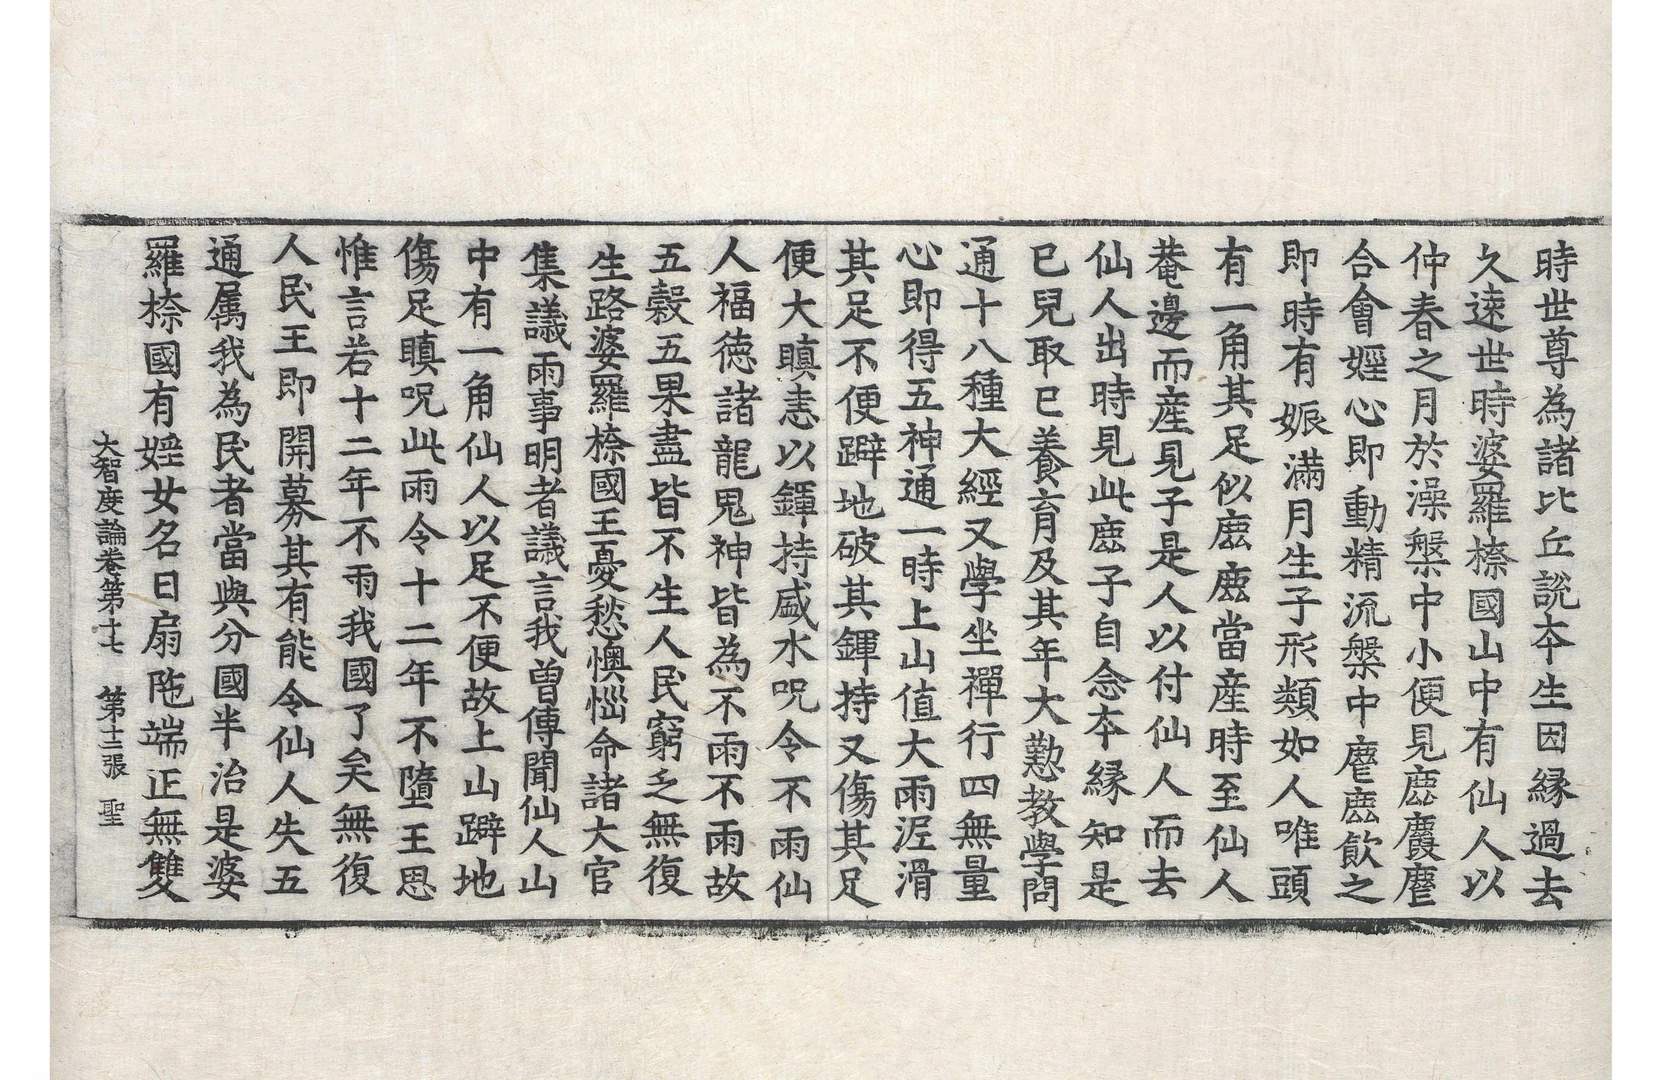 時世尊為諸比丘說本生因縁過去
久遠世時婆羅㮈國山中有仙人以
仲春之月於澡槃中小便見鹿麚麀
合會婬心即動精流槃中麀鹿飲之
即時有娠滿月生子形類如人唯頭
有一角其足似鹿鹿當產時至仙人
菴邊而產見子是人以付仙人而去
仙人出時見此鹿子自念本縁知是
已兒取已養育及其年大懃教學問
通十八種大經又學坐禪行四無量
心即得五神通一時上山值大雨泥滑
其足不便躃地破其鍕持又傷其足
便大瞋恚以鍕持盛水呪令不雨仙
人福德諸龍鬼神皆為不雨不雨故
五穀五果盡皆不生人民窮乏無復
生路婆羅㮈國王憂愁懊惱命諸大官
集議雨事明者議言我曽傳聞仙人山
中有一角仙人以足不便故上山躃地
傷足瞋呪此雨令十二年不墮王思
惟言若十二年不雨我國了矣無復
人民王即開募其有能令仙人失五
通属我為民者當與分國半治是婆
羅㮈國有婬女名曰扇陁端正無雙
大智度論卷第十七 第十二張 聖